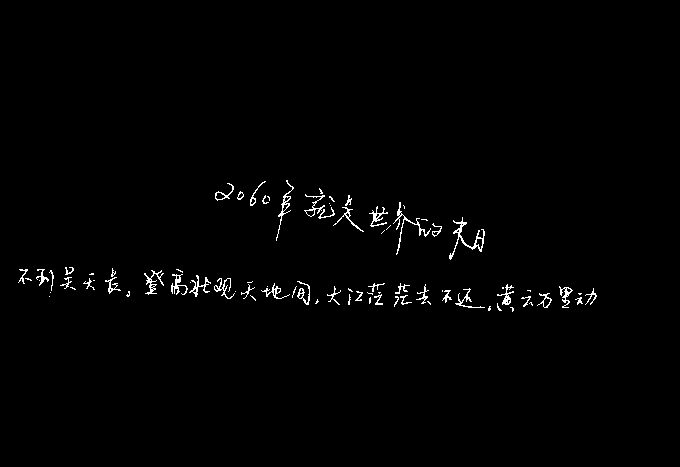 2060年就是世界的末日
不到吴天长。登高壮观天地间,大江茫茫去不还,黄云万里动